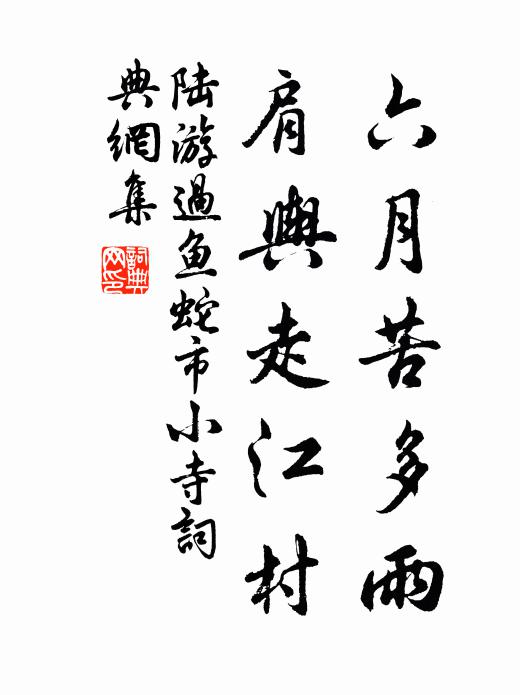 六月苦多雨
肩輿走江村
陆游過鱼蛇市小寺詞
典網集
詞典
网印